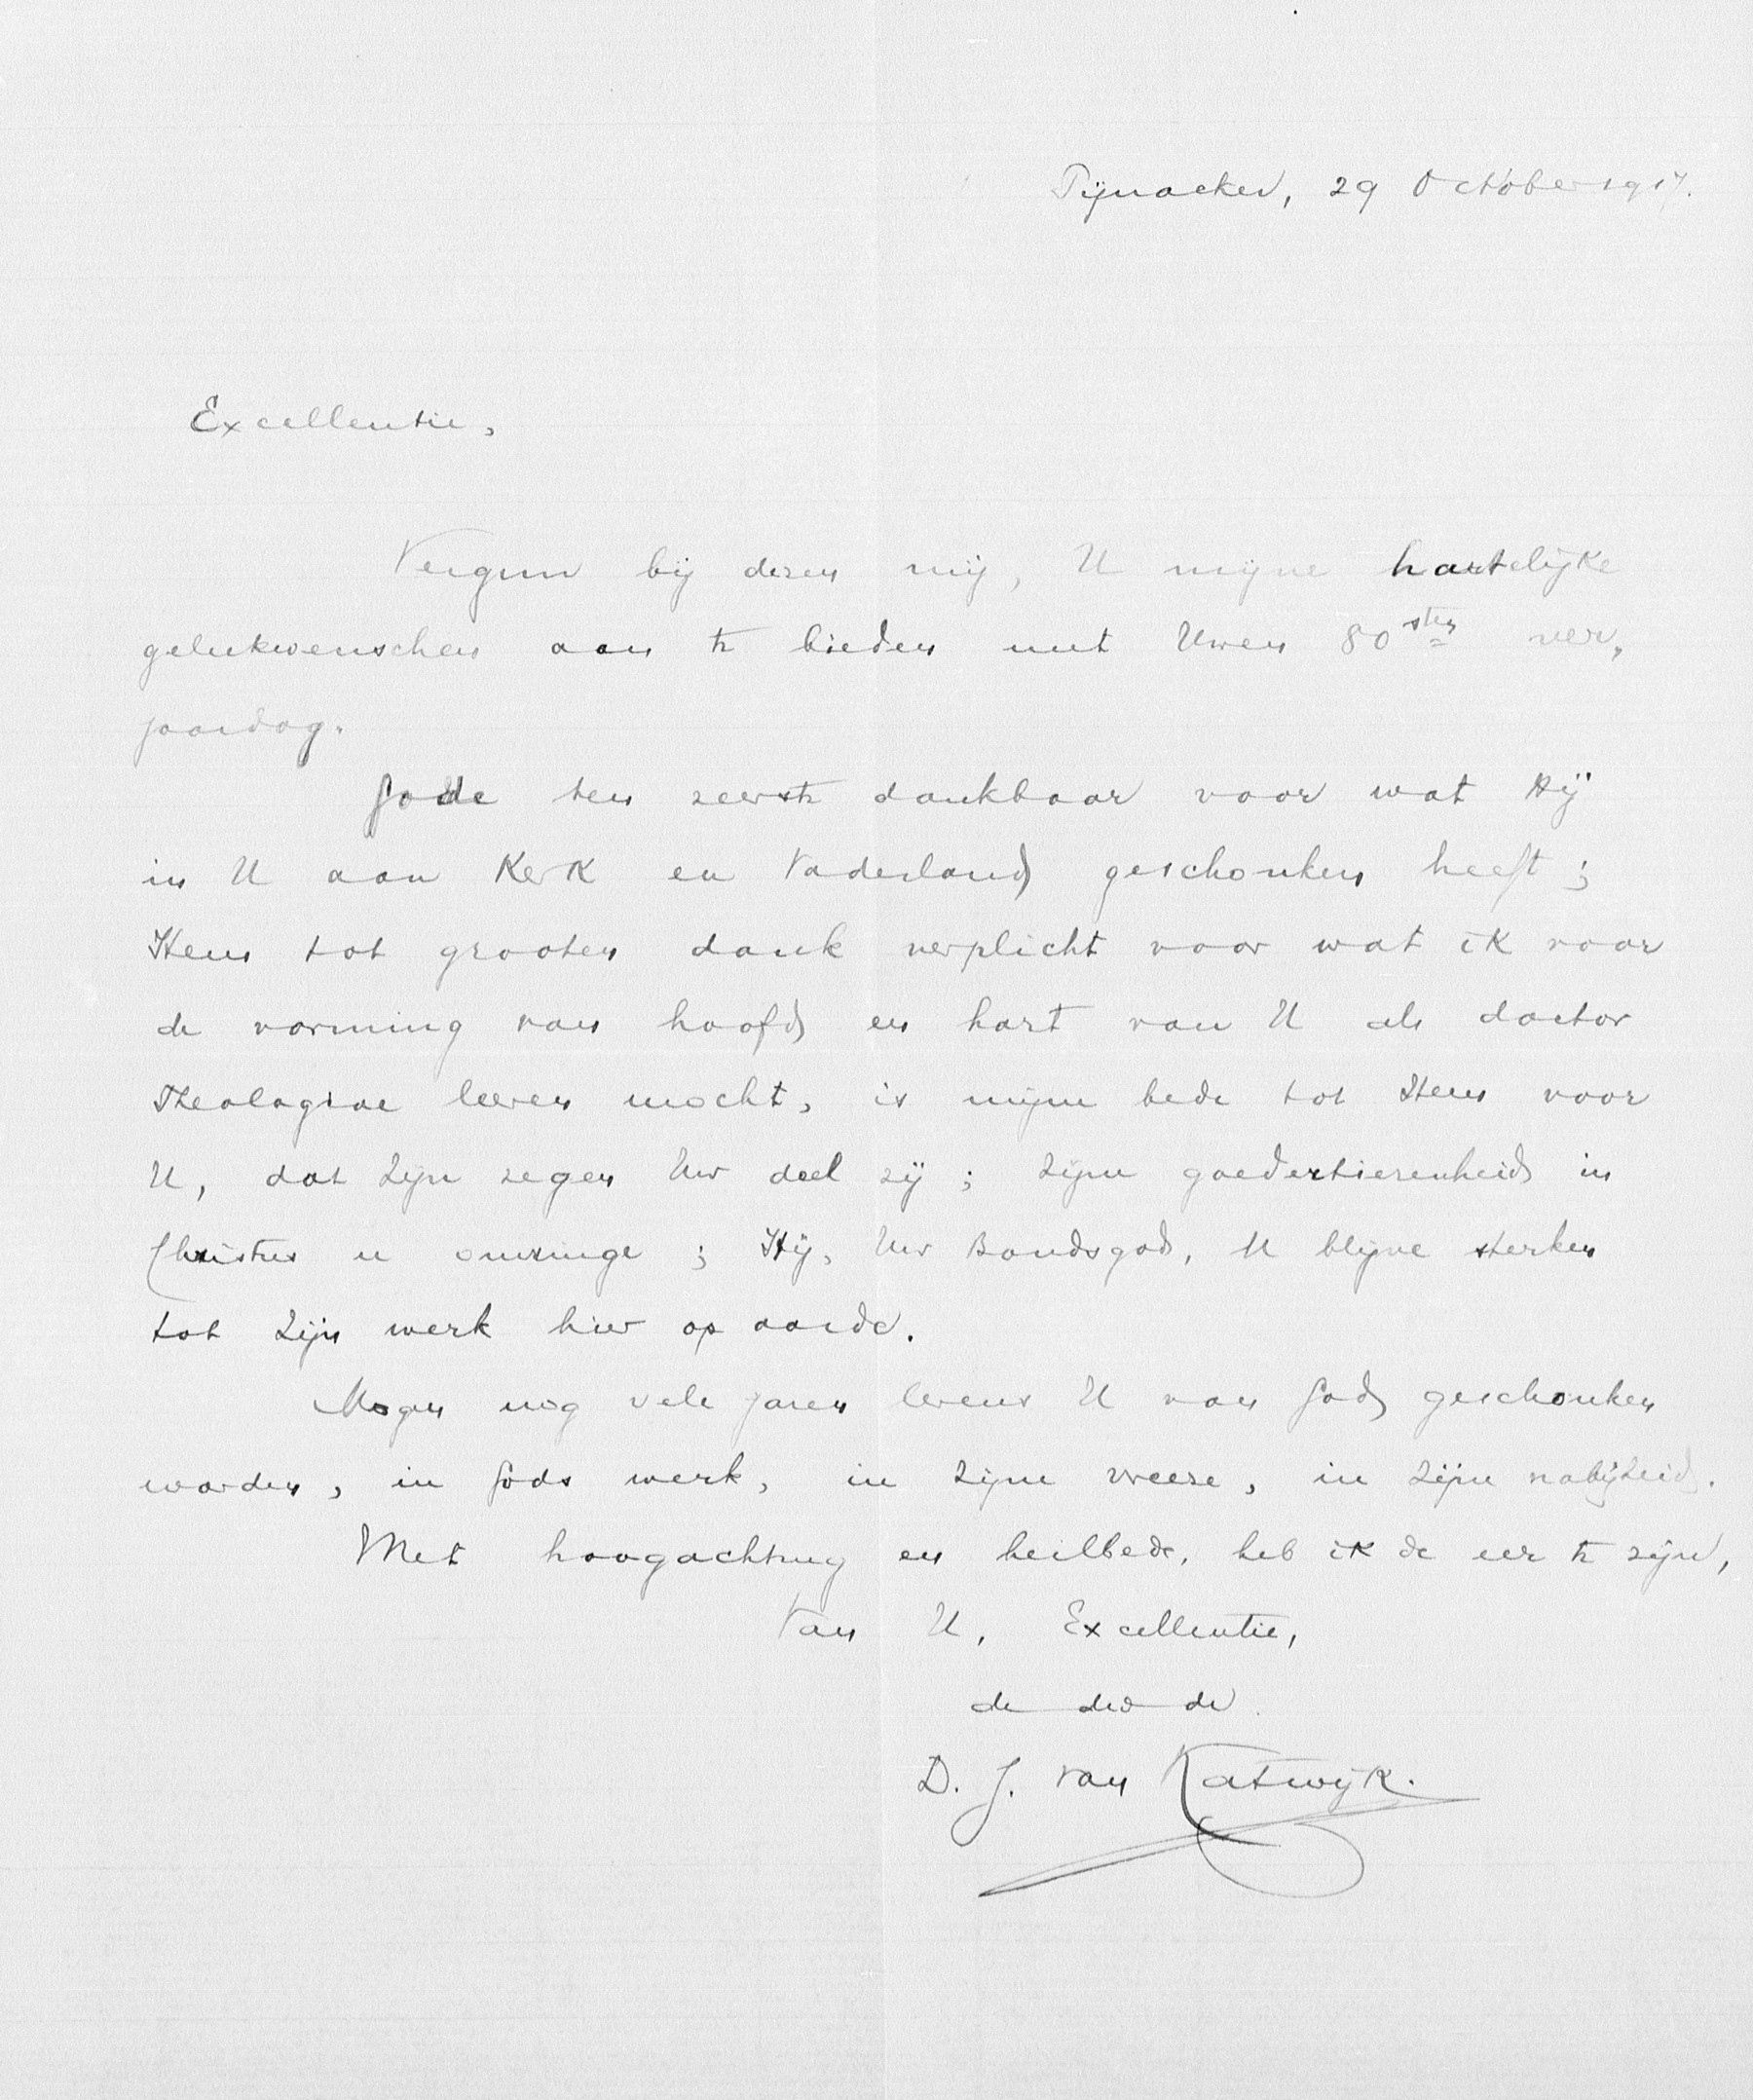 Pijnacker, 29 October 1917.
Excellentie,
Vergun bij dezen mij, U mijne hartelijke
gelukwenschen aan te bieden met Uwen 80sten ver,
jaardag.
Gode ten zeerste dankbaar voor wat Hij
in U aan Kerk en Vaderland geschonken heeft;
Hem tot grooten dank verplicht voor wat ik voor
de vorming van hoofd en hart van U als doctor
Theologiae leeren mocht, is mijne bede tot Hem voor
U, dat Zijn zegen Uw deel zij; Zijne goedertierenheid in
Christus u omringe; Hij, Uw Bondsgod, U blijve sterken
tot Zijn werk hier op aarde.
Mogen nog vele jaren levens U van God geschonken
worden, in Gods werk, in Zijne vreeze, in Zijne nabijheid.
Met hoogachting en heilbede, heb ik de eer te zijn,
Van U, Excellentie,
de dw dr
D. J. van Katwijk.